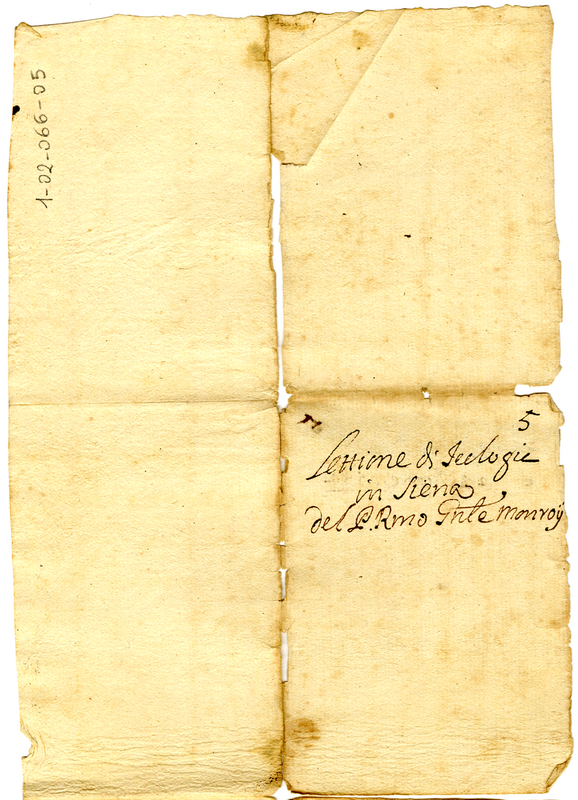 1-02-066-05
5
Lettione di Teologie
in Siena
del P. Rmo Gnle Monroÿ